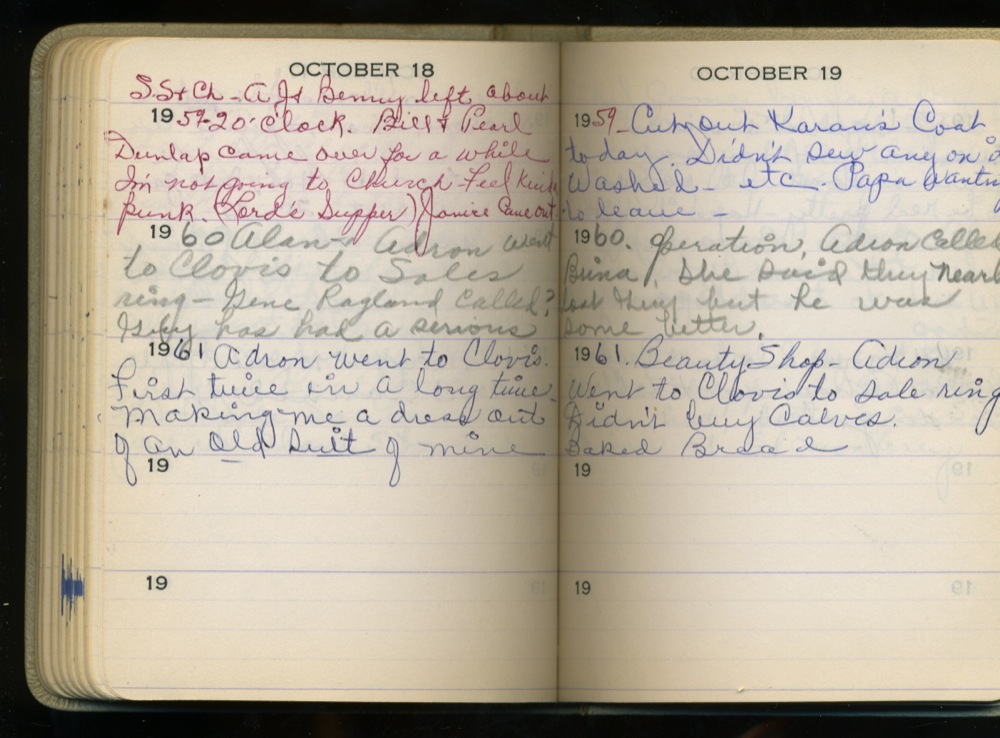 OCTOBER 18
S.S + Ch - A Js Benny left about
1959-20'clock. Bill + Pearl
Dunlap came over for a while
I'm not going to Church - Feel kinda
punk. (Lords Supper) Janice Came out.
1960 Alan + Adron went
to Clovis to Sales
ring - Gene Ragland Called?
has had a serious
1961 Adron went to Clovis.
First time in a long time.
Making me a dress out
of an Old Suit of mine
19
19
OCTOBER 19
1959 - Cut out Karan's Coat
today. Didn't sew any on it
Washed - etc. Papa wantin
to leave -
1960. operation, Adron Called
. She said they nearly
lost but he was
some better.
1961. Beauty Shop - Adron
Went to Clovis to sale ring
Didn't buy Calves.
Baked Bread
19
19